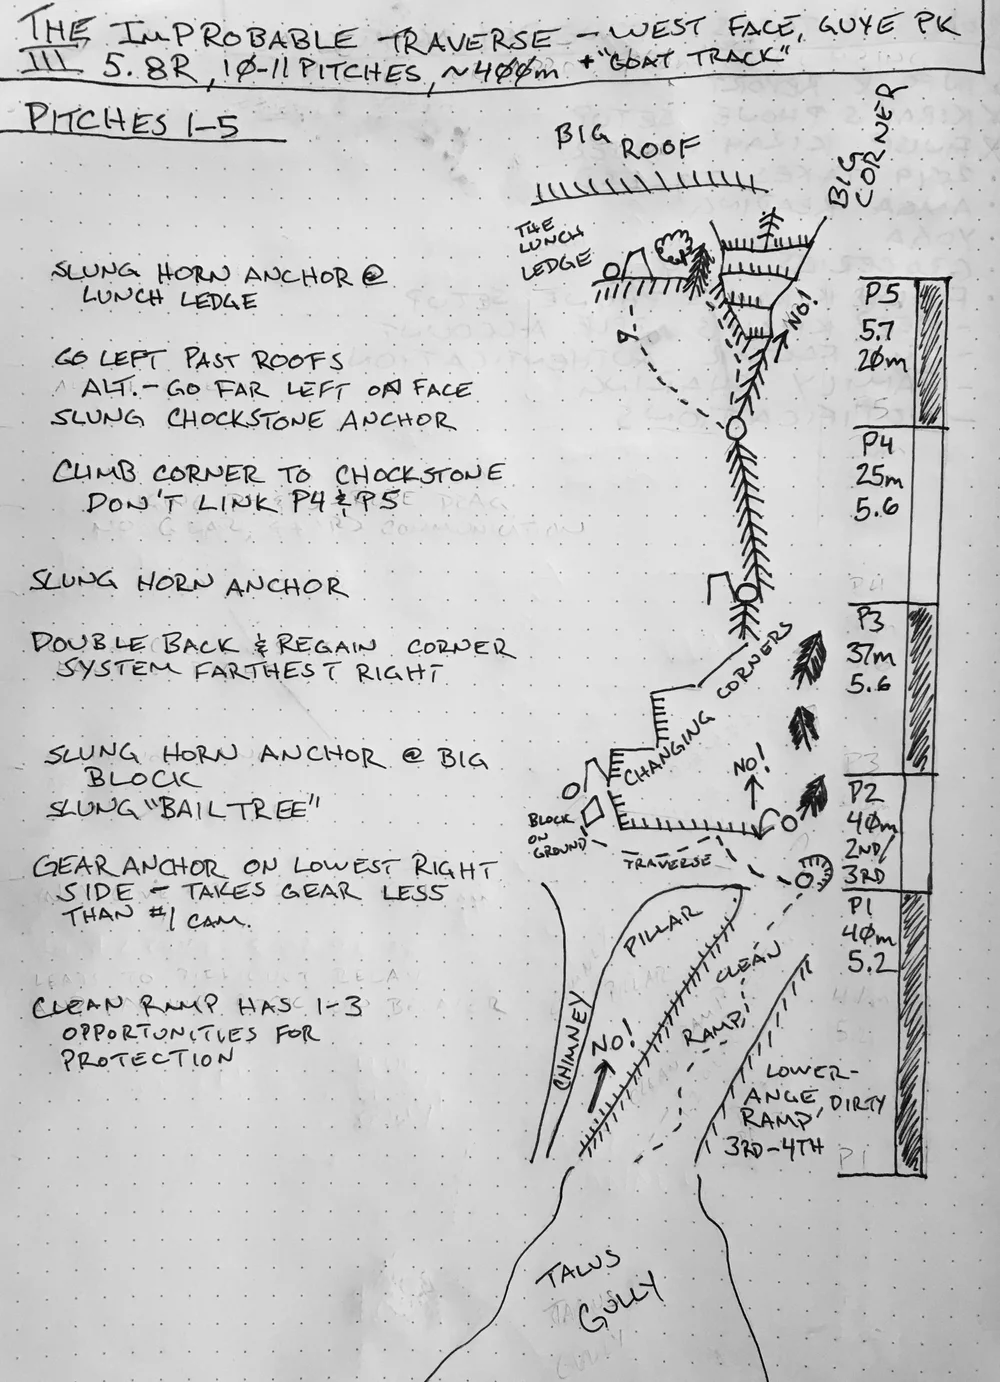 THE IMPROBABLE TRAVERSE - WEST FACE, GUYE PK
III 5.8R, 10-11 PITCHES, ~400m + "GOAT TRACK"
PITCHES 1-5
BIG ROOF
BIG CORNER
THE LUNCH LEDGE
SLUNG HORN ANCHOR @
LUNCH LEDGE
NO!
P5
5.7
20m
GO LEFT PAST ROOFS
ALT. - GO FAR LEFT ON FACE
SLUNG CHOCKSTONE ANCHOR
P4
25m
5.6
CLIMB CORNER TO CHOCKSTONE
DON'T LINK P4 & P5
SLUNG HORN ANCHOR
P3
37m
5.6
DOUBLE BACK & REGAIN CORNER
SYSTEM FARTHEST RIGHT
CHANGING CORNERS
SLUNG HORN ANCHOR @ BIG
BLOCK
SLUNG "BAIL TREE"
NO!
BLOCK
ON
GROUND
TRAVERSE
P2
40m
2ND/
3RD
GEAR ANCHOR ON LOWEST RIGHT
SIDE - TAKES GEAR LESS
THAN #1 CAM.
PILLAR
CLEAN
RAMP
P1
40m
5.2
CLEAN RAMP HAS 1-3
OPPORTUNITIES FOR
PROTECTION
CHIMNEY
NO!
LOWER-
ANGE
RAMP, DIRTY
3RD-4TH
TALUS
GULLY